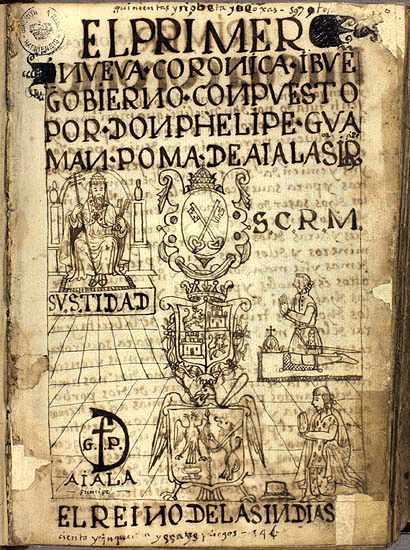 quinientas y nobeta y
EL PRIMER
NVEVA·CORONICA·IBVE
GOBIERNO·CONPVESTO
POR·DON PHELIPE·GVA
MAN·POMA·DE AIALA SR
S.C.R.M.
SV.S.TIDAD
G P
AIALA
principe
EL REINO DE LAS INDIAS
ciento y quarenta y pliegos - 146